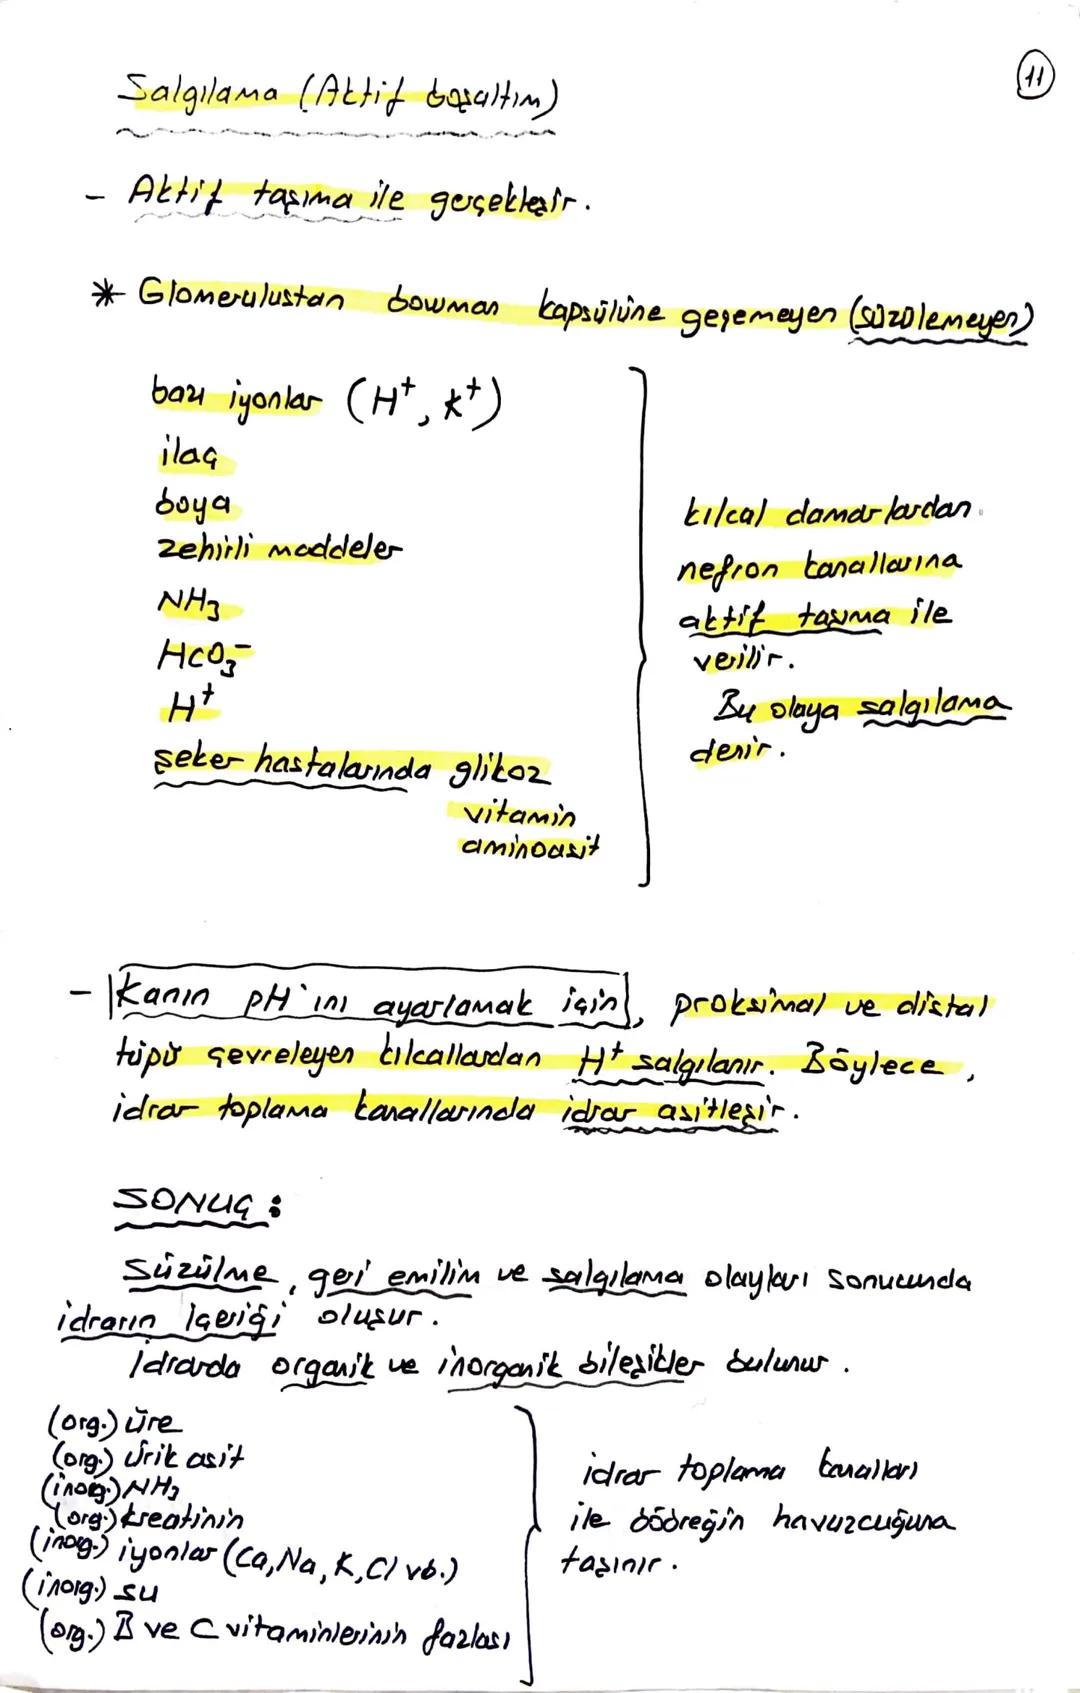 11
Salgılama (Aktif boşaltım)
- Aktif taşıma ile gerçekleşir.
* Glomerulustan bowman kapsülüne geçemeyen (süzülemeyen)
bazı iyonlar (H⁺, K⁺)
ilaç
boya
zehirli maddeler
NH₃
HCO₃⁻
H⁺
şeker hastalarında glikoz
vitamin
aminoasit
kılcal damarlardan
nefron kanallarına
aktif taşıma ile
verilir.
Bu olaya salgılama
denir.
- Kanın pH'ını ayarlamak için, proksimal ve distal
tüpü çevreleyen kılcallardan H⁺ salgılanır. Böylece,
idrar toplama kanallarında idrar asitleşir.
SONUÇ :
Süzülme, geri emilim ve salgılama olayları sonucunda
idrarın içeriği oluşur.
İdrarda organik ve inorganik bileşikler bulunur.
(org.) üre
(org.) ürik asit
(inorg.) NH₃
(org.) kreatinin
(inorg.) iyonlar (Ca, Na, K, Cl vb.)
(inorg.) su
(org.) B ve C vitaminlerinin fazlası
idrar toplama kanalları
ile böbreğin havuzcuğuna
taşınır.